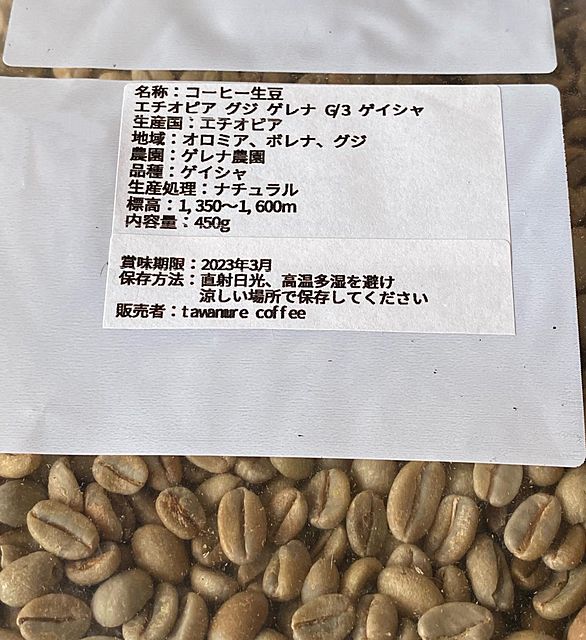 名称：コーヒー生豆
エチオピア グジ ゲレナ G/3 ゲイシャ
生産国：エチオピア
地域：オロミア、ボレナ、グジ
農園：ゲレナ農園
品種：ゲイシャ
生産処理：ナチュラル
標高：1,350〜1,600m
内容量：450g
賞味期限：2023年3月
保存方法：直射日光、高温多湿を避け
涼しい場所で保存してください
販売者：tawamure coffee